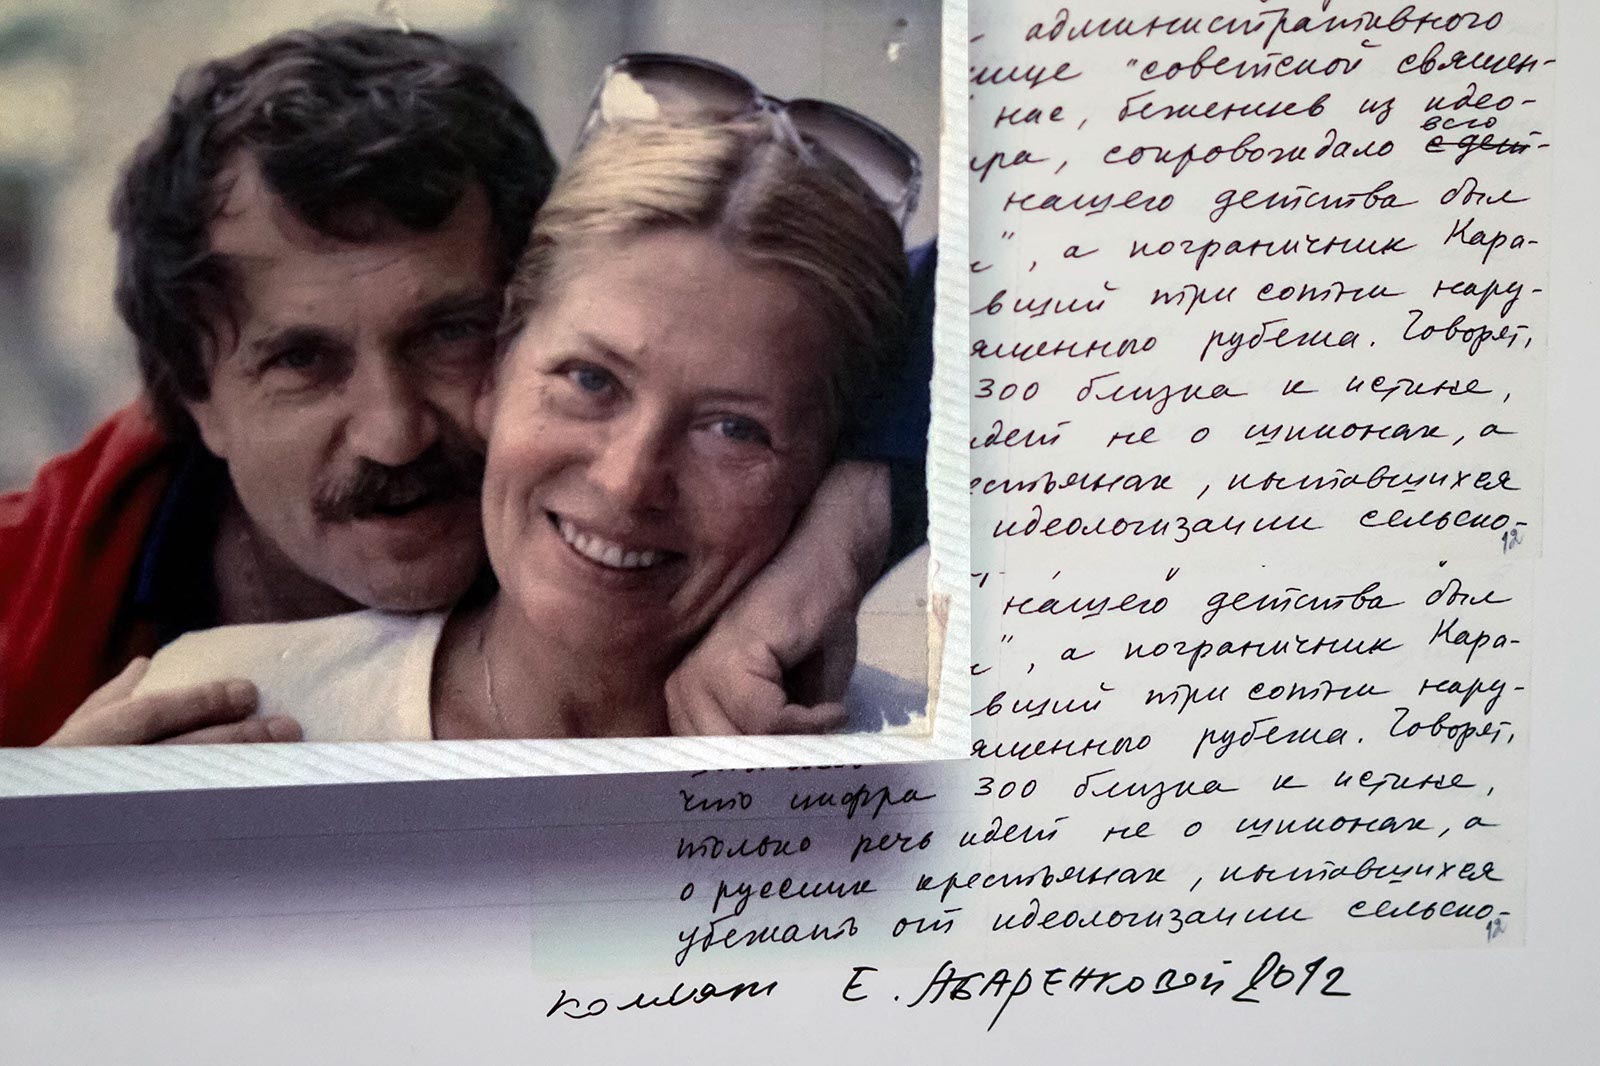 административного
ище "советской священ-
нас, беженцев из идео-
всего
ра, сопровождало
нашего детства был
", а пограничник Кара-
вший три сотни нару-
ященного рубежа. Говорят,
300 близка к истине,
идет не о шпионах, а
рестьянах, пытавшихся
идеологизации сельско-
12
нашего детства был
", а пограничник Кара-
вший три сотни нару-
ященного рубежа. Говорят,
что цифра 300 близка к истине,
только речь идет не о шпионах, а
о русских крестьянах, пытавшихся
убежать от идеологизации сельско-
12
коллаж Е. Абаренковой 2012